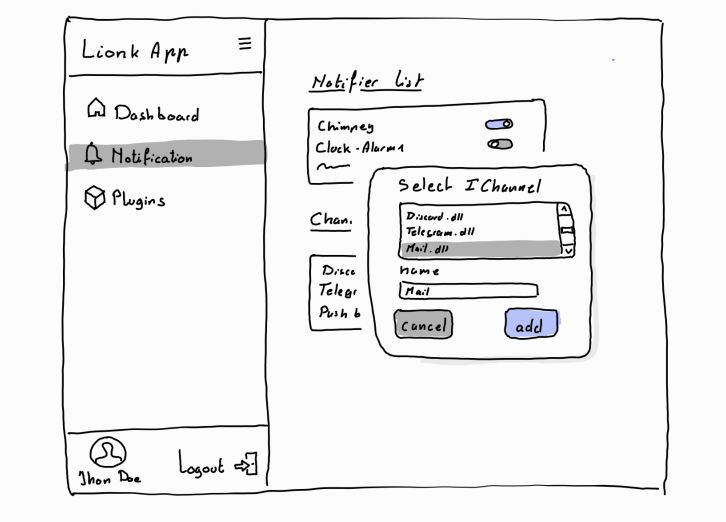 Lionk App
Dashboard
Notification
Plugins
Jhon Doe
Logout
Notifier List
Chimney
Clock-Alarm1
Chan.
Disco
Telegr
Push b
Select IChannel
Discord.dll
Telegram.dll
Mail.dll
name
Mail
Cancel
add